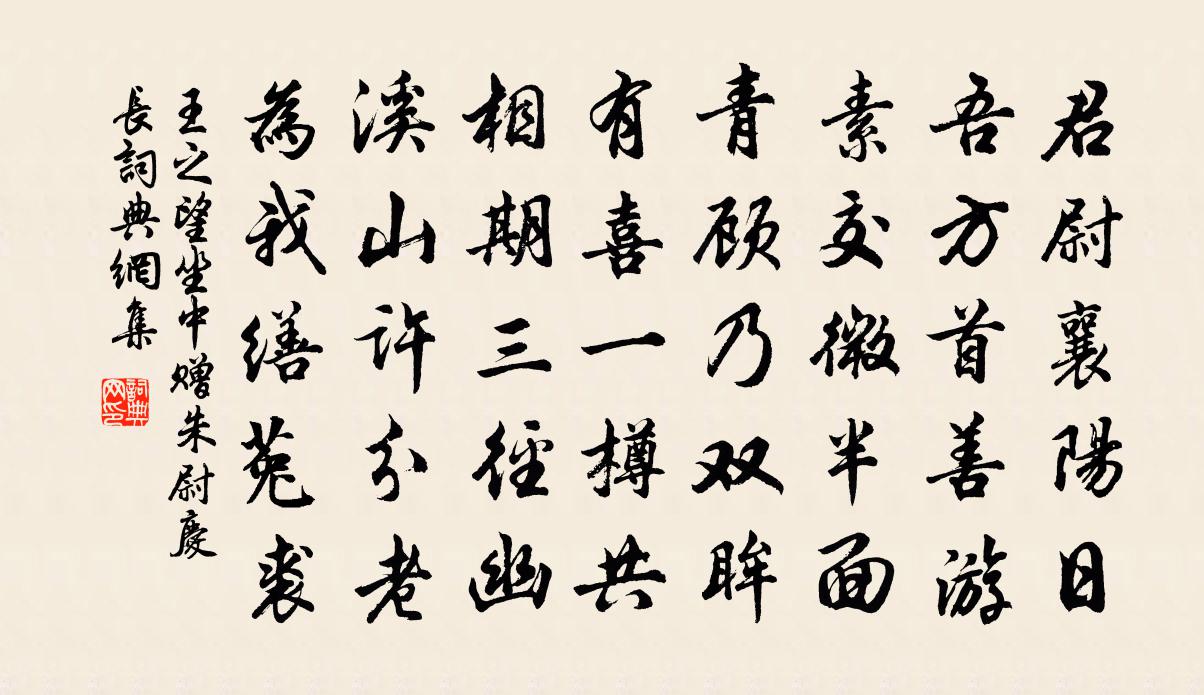 君尉襄陽日
吾方首善游
素交微半面
青顾乃双眸
有喜一樽共
相期三徑幽
溪山許分老
為我繕菟裘
王之望坐中贈朱尉慶
長詞典網集
詞典网印